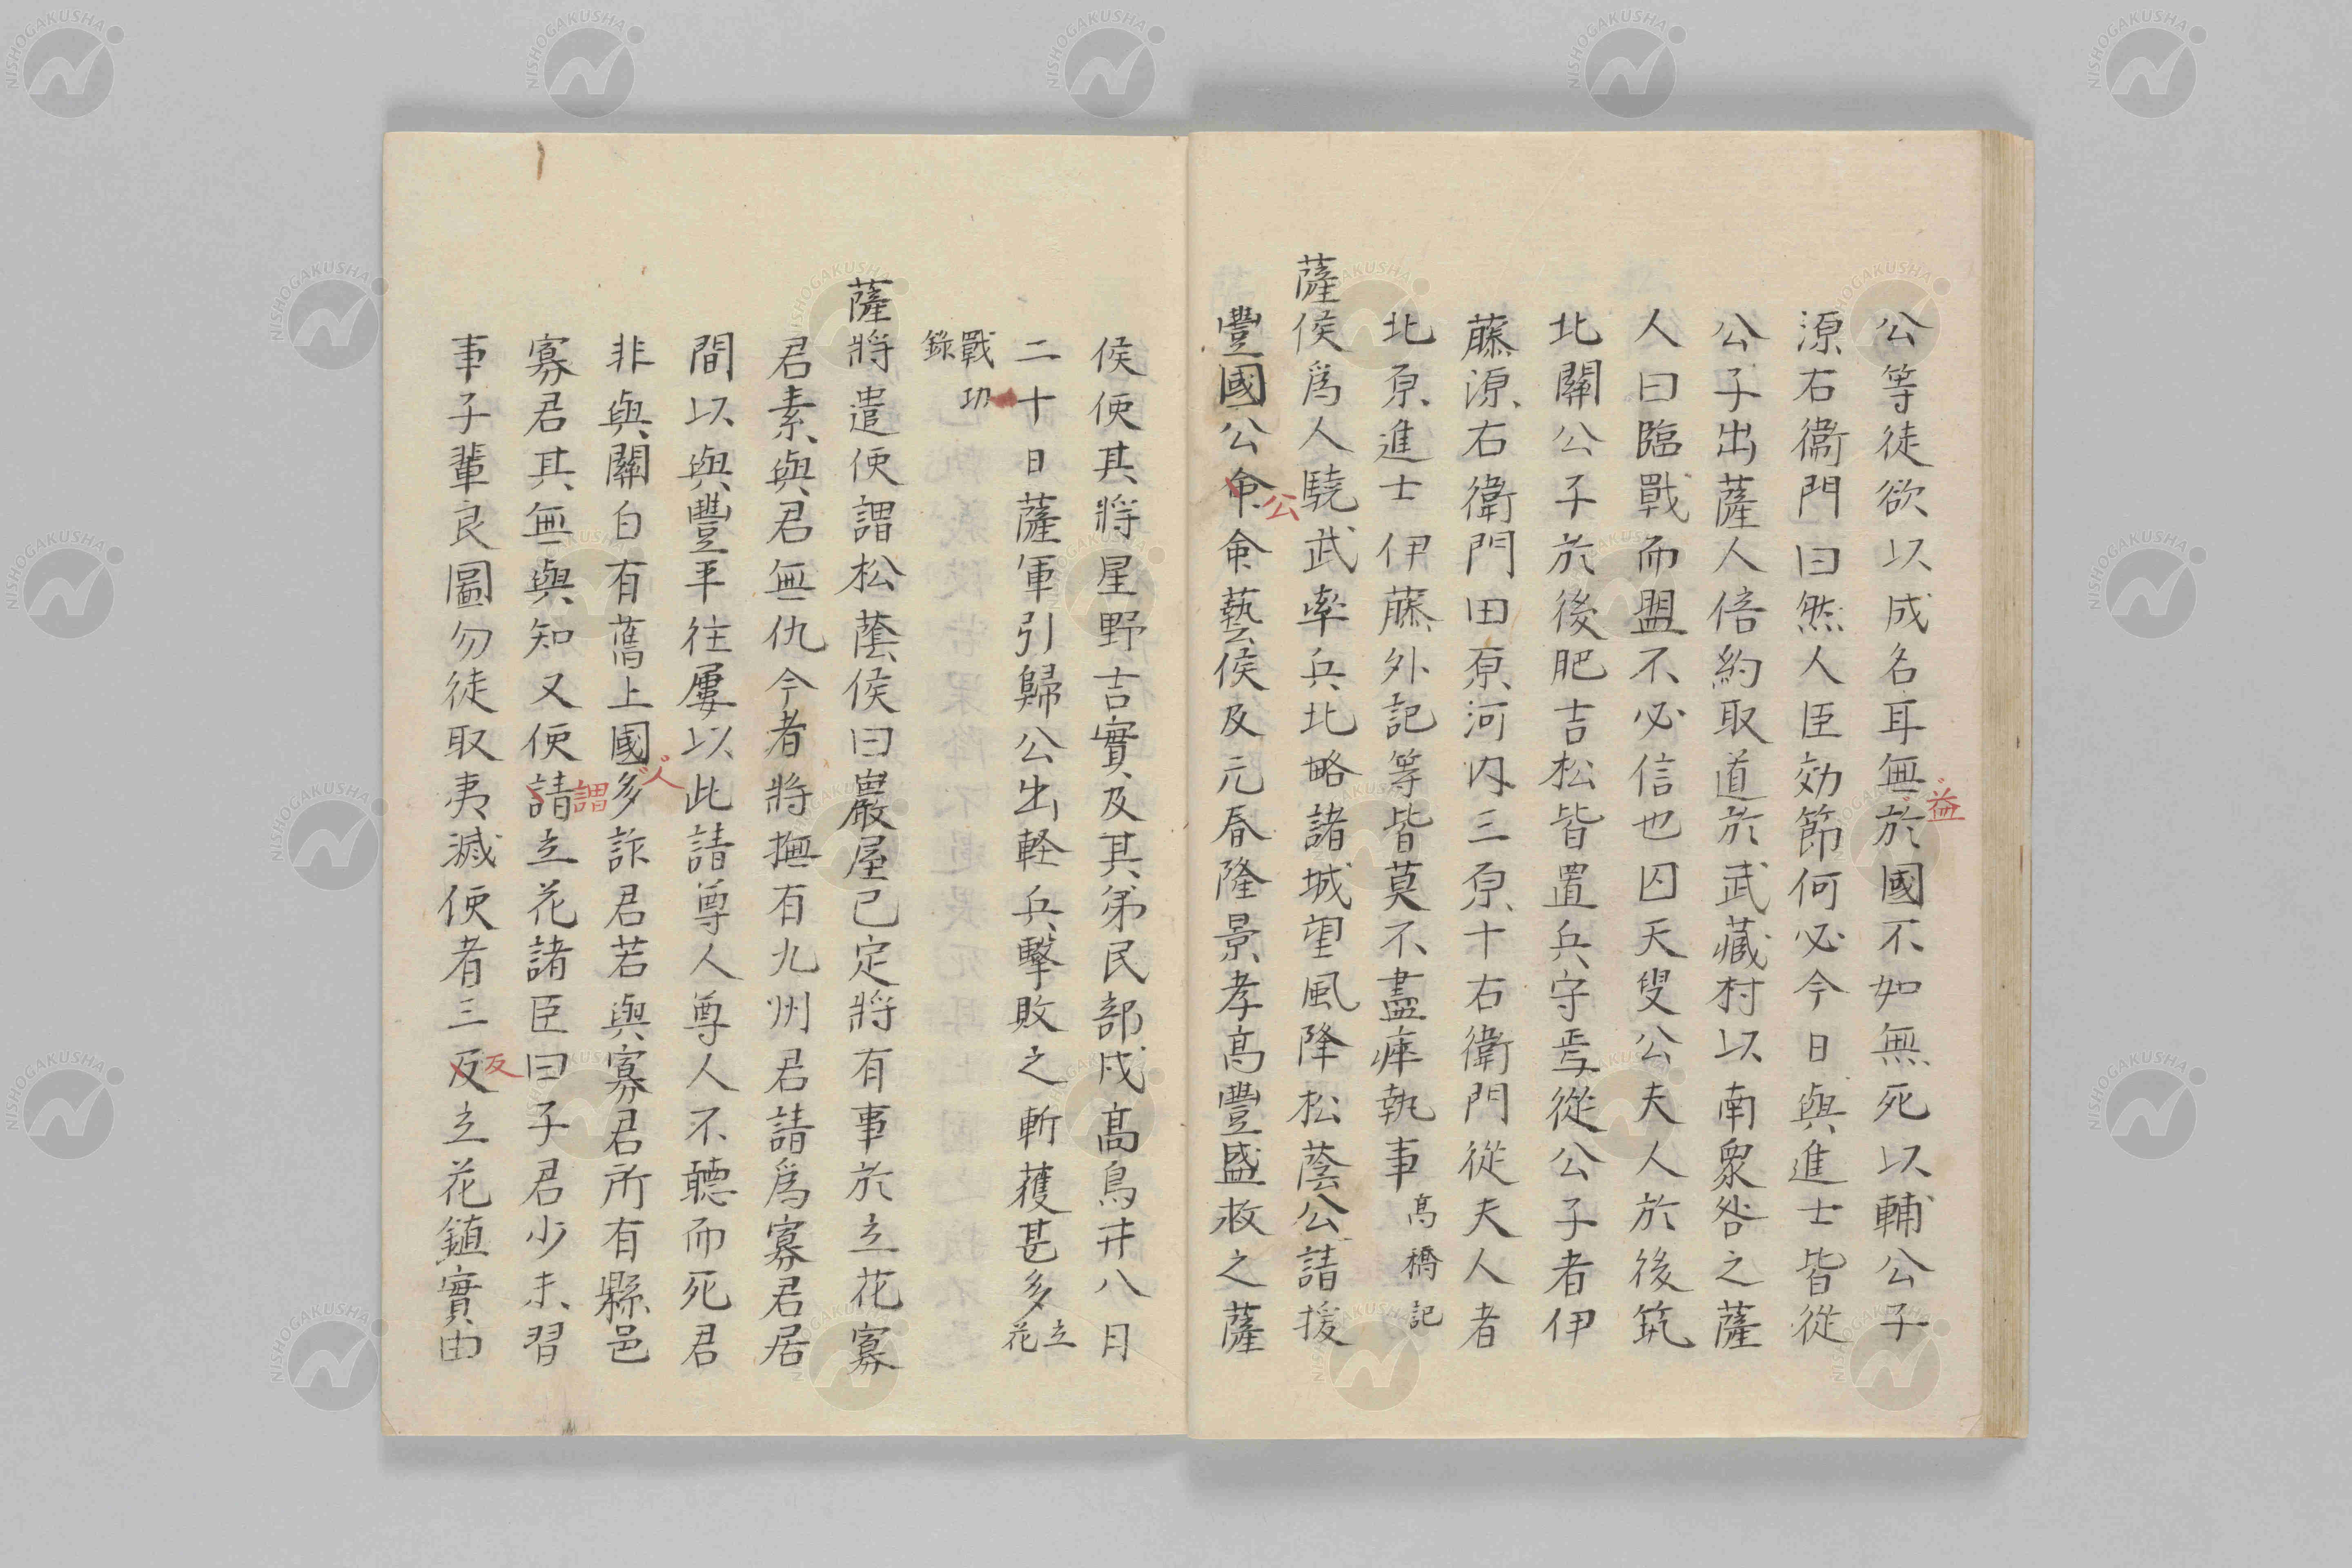 公等徒欲以成名耳無於國不如無死以輔公子
益
源右衞門曰然人臣効節何必今日與進士皆從
公子出薩人倍約取道於武藏村以南衆咎之薩
人曰臨戰而盟不必信也囚天叟公夫人於後筑
北關公子於後肥吉松皆置兵守焉從公子者伊
藤源右衞門田原河内三原十右衞門從夫人者
北原進士伊藤外記等皆莫不盡瘁執事高橋記
薩侯爲人驍武率兵北略諸城望風降松蔭公請援
豐國公命命藝侯及元春隆景孝高豐盛救之薩
公
侯使其將星野吉實及其弟民部戍高鳥井八月
二十日薩軍引歸公出輕兵擊敗之斬獲甚多立花
戰功錄
薩將遣使謂松蔭侯曰巖屋已定將有事於立花寡
君素與君無仇今者將撫有九州君請爲寡君居
間以與豐平往屢以此請尊人尊人不聽而死君
非與關白有舊上國多詐君若與寡君所有縣邑
人
寡君其無與知又使請立花諸臣曰子君少未習
謂
事子輩良圖勿徒取夷滅使者三及立花鎮實由
反
NISHOGAKUSHA